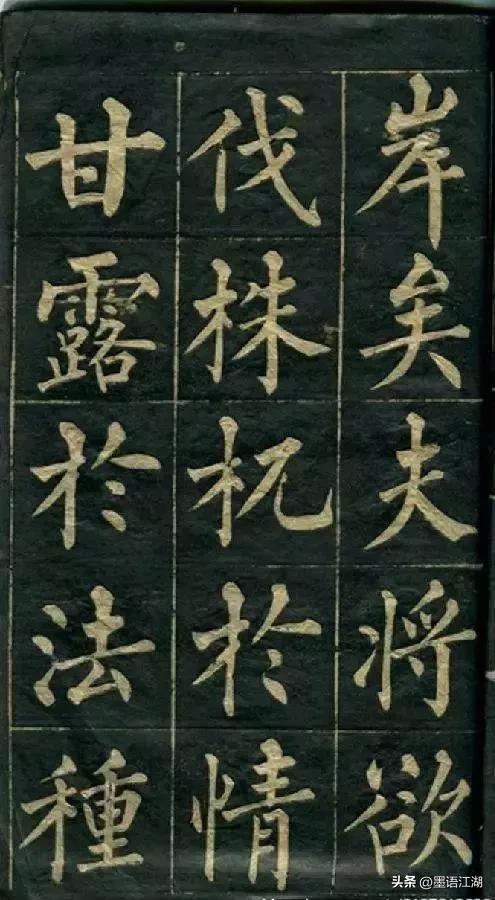 岸矣夫将欲
伐株杌於情
甘露於法種
头条 @墨语江湖